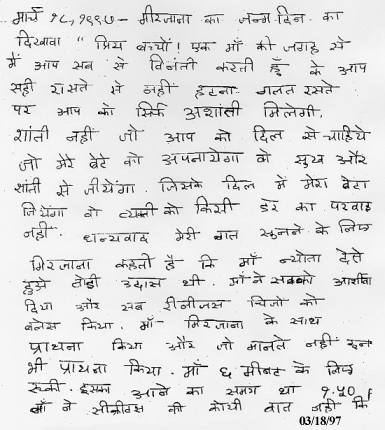 मार्च १८, १९९७ - मीरजाना का जन्म दिन. का
दिखावा " प्रिय बच्चों! एक माँ की जगह से
मैं आप सब से विनंती करती हुँ के आप
सही रास्ते से नही हटना. गलत रास्ते
पर आप को सिर्फ अशांती मिलेगी.
शांती नहीं जो आप को दिल से चाहिये
जो मेरे बेटे को अपनायेगा वो सुख और
शांती से जीयेंगा. जिसके दिल में मेरा बेटा
जियेंगा वो व्यक्ती को किसी डर का परवाह
नही. धन्यवाद मेरी बात सुनने के लिए
मिरजाना कहती है कि माँ न्योता देते
हुऐ थोडी उदास थी. माँ ने सबको आशीर्वाद
दिया और सब रीलीजस चिजो को
बलेस किया. माँ मिरजाना के साथ
प्राथना किया और जो मानते नही उन
भी प्राथना किया. माँ ६ मीनट के लिए
रुकी. इसका आने का समय था १.५०
माँ ने सीक्रीटस की कोयी बात नही कि
03/18/97